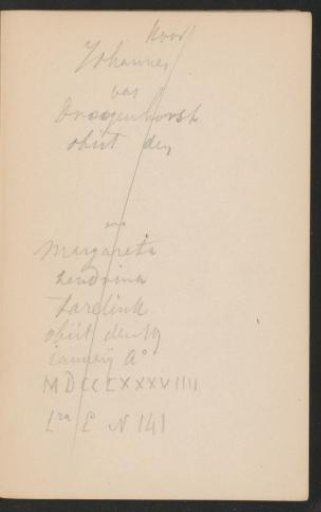 Voor
Johannes
van
Droogenhorst
obiit den
en
Margareta
hendrina
Lardink
obiit den 19
january A°
MDCCLXXXVIIII
Lra L N 141